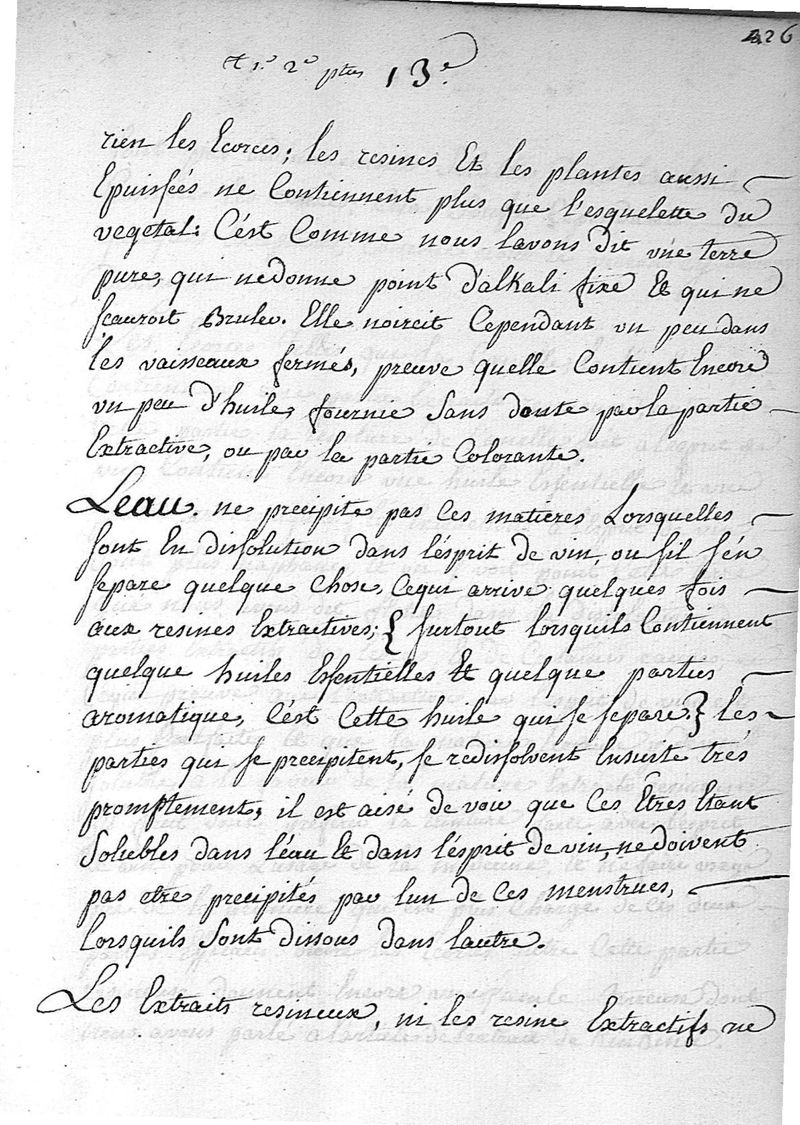 226
t 1.º 2º ptes 13.e
rien les Ecorces; les resines Et les plantes aussi
Epuisées ne Contiennent plus que l'esquelette du
vegetal: C'est Comme nous lavons dit vne terre
pure, qui nedonne point d'alkali fixe Et qui ne
scauroit Bruler. Elle noircit Cependant vn peu dans
les vaisseaux fermés, preuve quelle Contient Encore
vn peu d'huile, fournie Sans doute par la partie
Extractive, ou par la partie Colorante.
Leau ne precipite pas Ces matieres Lorsquelles
sont En dissolution dans l'ésprit de vin, ou s'il s'én
separe quelque Chose, Cequi arrive quelques fois
aux resines Extractives; { surtout lorsquils Contiennent
quelque huiles Essentielles Et quelque parties
aromatique, C'ést Cette huile qui se separe } les
parties qui se precipitent, se redissolvent Ensuite trés
promptement, il est aisé de voir que Ces Êtres Etant
Solubles dans l'éau Et dans l'ésprit de vin, nedoivent
pas etre precipités par lun de Ces menstrues,
Lorsquils Sont dissous dans lautre.
Les Extraits resineux, ni les resine Extractifs ne